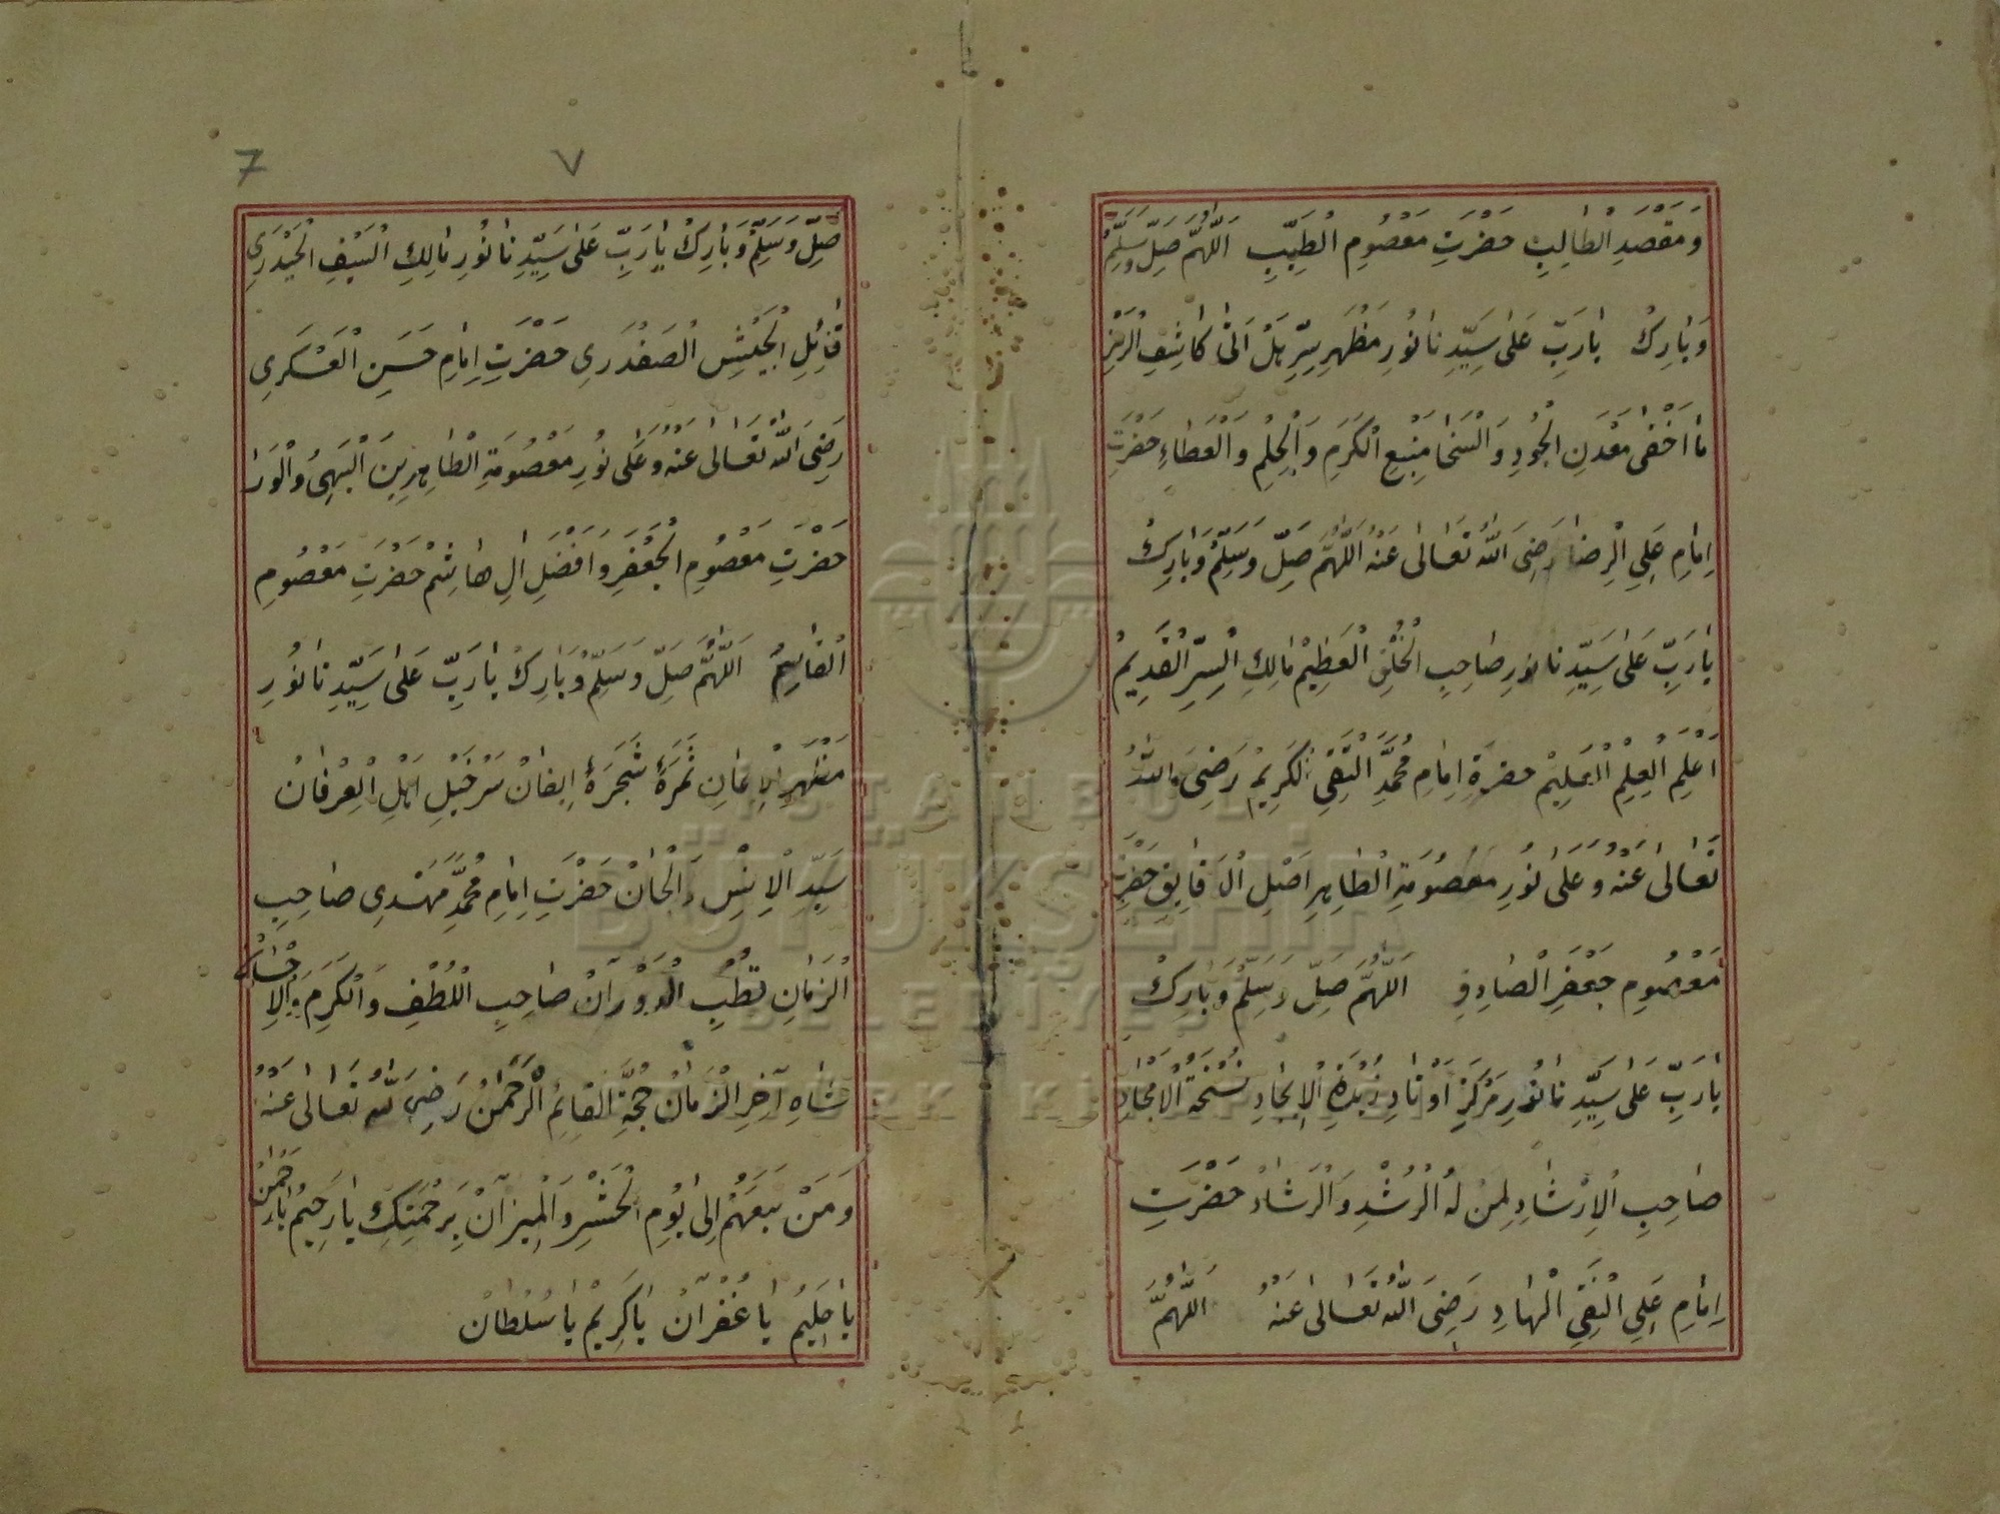 وَمَقْصَدِ الْطَالِبِ حَضْرَتِ مَعْصُومِ الطَيِّبِ اَللّٰهُمَّ صَلِّ وَسَلِّمْ
وَبَارِكْ يَارَبِّ عَلٰى سَيِّدِنَا نُورِ مَظْهَرِ سِرِّ هَلْ اَتٰى كَاشِفِ الْرَمْزِ
مَا اَخْفٰى مَعْدَنِ الْجُودِ وَالْسَخَا مَنْبَعِ الْكَرَمِ وَالْحِلْمِ وَالْعَطَاءِ حَضْرَتِ
اِمَامِ عَلِي الْرِضَا رَضِىَ اللّٰهُ تَعَالٰى عَنْهُ اَللّٰهُمَّ صَلِّ وَسَلِّمْ وَبَارِكْ
يَارَبِّ عَلٰى سَيِّدِنَا نُورِ صَاحِبِ الْخُلْقِ الْعَظِيمْ مَالِكِ الْسِرِّ الْقَدِيمْ
اَعْلَمِ الْعِلْمِ الْعَلِيمْ حضرةِ اِمَامِ مُحَمَّدِ الْتَقِىِّ الْكَرِيمْ رَضِىَ اللّٰهُ
تَعَالٰى عَنْهُ وَعَلٰى نُورِ مَعْصُومَةِ الْطَاهِرِ اَصْلِ الْدَقَايِقِ حَضْرَتِ
مَعْصُومِ جَعْفَرِ الْصَادِقِ اَللّٰهُمَّ صَلِّ وَسَلِّمْ وَبَارِكْ
يَارَبِّ عَلٰى سَيِّدِنَا نُورِ مَرْكَزِ اَوْتَادِ زُبْدَةِ الْاِيجَادِ نُسْخَةُ الْاَمْجَادِ
صَاحِبِ الْاِرْشَادِ لِمَنْ لَهُ الْرُشْدِ وَالْرَشَادْ حَضْرَتِ
اِمَامِ عَلِي الْنَقِىِّ الْهَادِ رَضِىَ اللّٰهُ تَعَالٰى عَنْهُ اَللّٰهُمَّ
7 ٧
صَلِّ وَسَلِّمْ وَبَارِكْ يَارَبِّ عَلٰى سَيِّدِنَا نُورِ مَالِكِ الْسَيْفِ الْحَيْدَرِي
قَاتِلِ الْجَيْشِ الْصَفْدَرِي حَضْرَتِ اِمَامِ حَسَنِ الْعَسْكَرِي
رَضِىَ اللّٰهُ تَعَالٰى عَنْهُ وَعَلٰى نُورِ مَعْصُومَةِ الْطَاهِرِينَ الْبَهِىُ وَالْوَرَا
حَضْرَتِ مَعْصُومِ الْجَعْفَرِ وَافْضَلِ اٰلِ هَاشِمْ حَضْرَتِ مَعْصُومِ
الْقَاسِمْ اَللّٰهُمَّ صَلِّ وَسَلِّمْ وَبَارِكْ يَارَبِّ عَلٰى سَيِّدِنَا نُورِ
مَظْهَرِ الْاِيمَانِ ثَمَرَهٔ شَجَرَهٔ اِيقَانْ سَرْخَيْلِ اَهْلِ الْعِرْفَانْ
سَيِّدِ الْاِنْسِ وَالْجَانْ حَضْرَتِ اِمَامِ مُحَمَّدِ مَهْدِي صَاحِبِ
الْزَمَانِ قُطْبِ الْدَوْرَانْ صَاحِبِ الْلُطْفِ وَالْكَرَمِ وَالْاِحْسَانْ
شَاهِ آخِرِ الْزَمَانْ حُجَّةِ الْقَائِمْ الْرَحْمٰنْ رَضِىَ اللّٰهُ تَعَالٰى عَنْهُ
وَمَنْ تَبَعَهُمْ اِلٰى يَوْمِ الْحَشْرِ وَالْمِيزَانْ بِرَحْمَتِكَ يَارَحِيمُ يَارَحْمٰنْ
يَاحَلِيمُ يَا غُفْرَانْ يَاكَرِيمْ يَاسُلْطَانْ
İSTANBUL
BÜYÜKŞEHİR
BELEDİYESİ